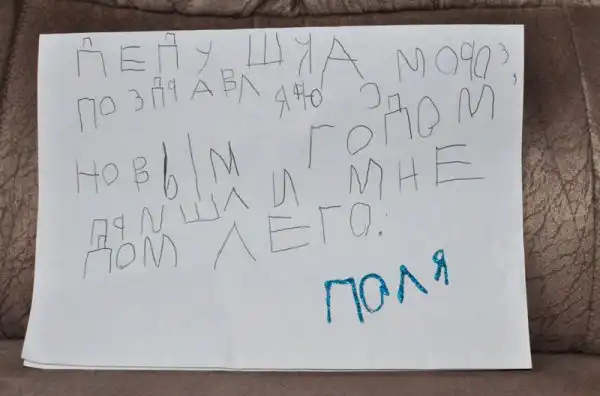 ДЕДУШКА МОРОЗ,
ПОЗДРАВЛЯЮ С
НОВЫМ ГОДОМ
ПРИШЛИ МНЕ
ДОМ ЛЕГО.
ПОЛЯ